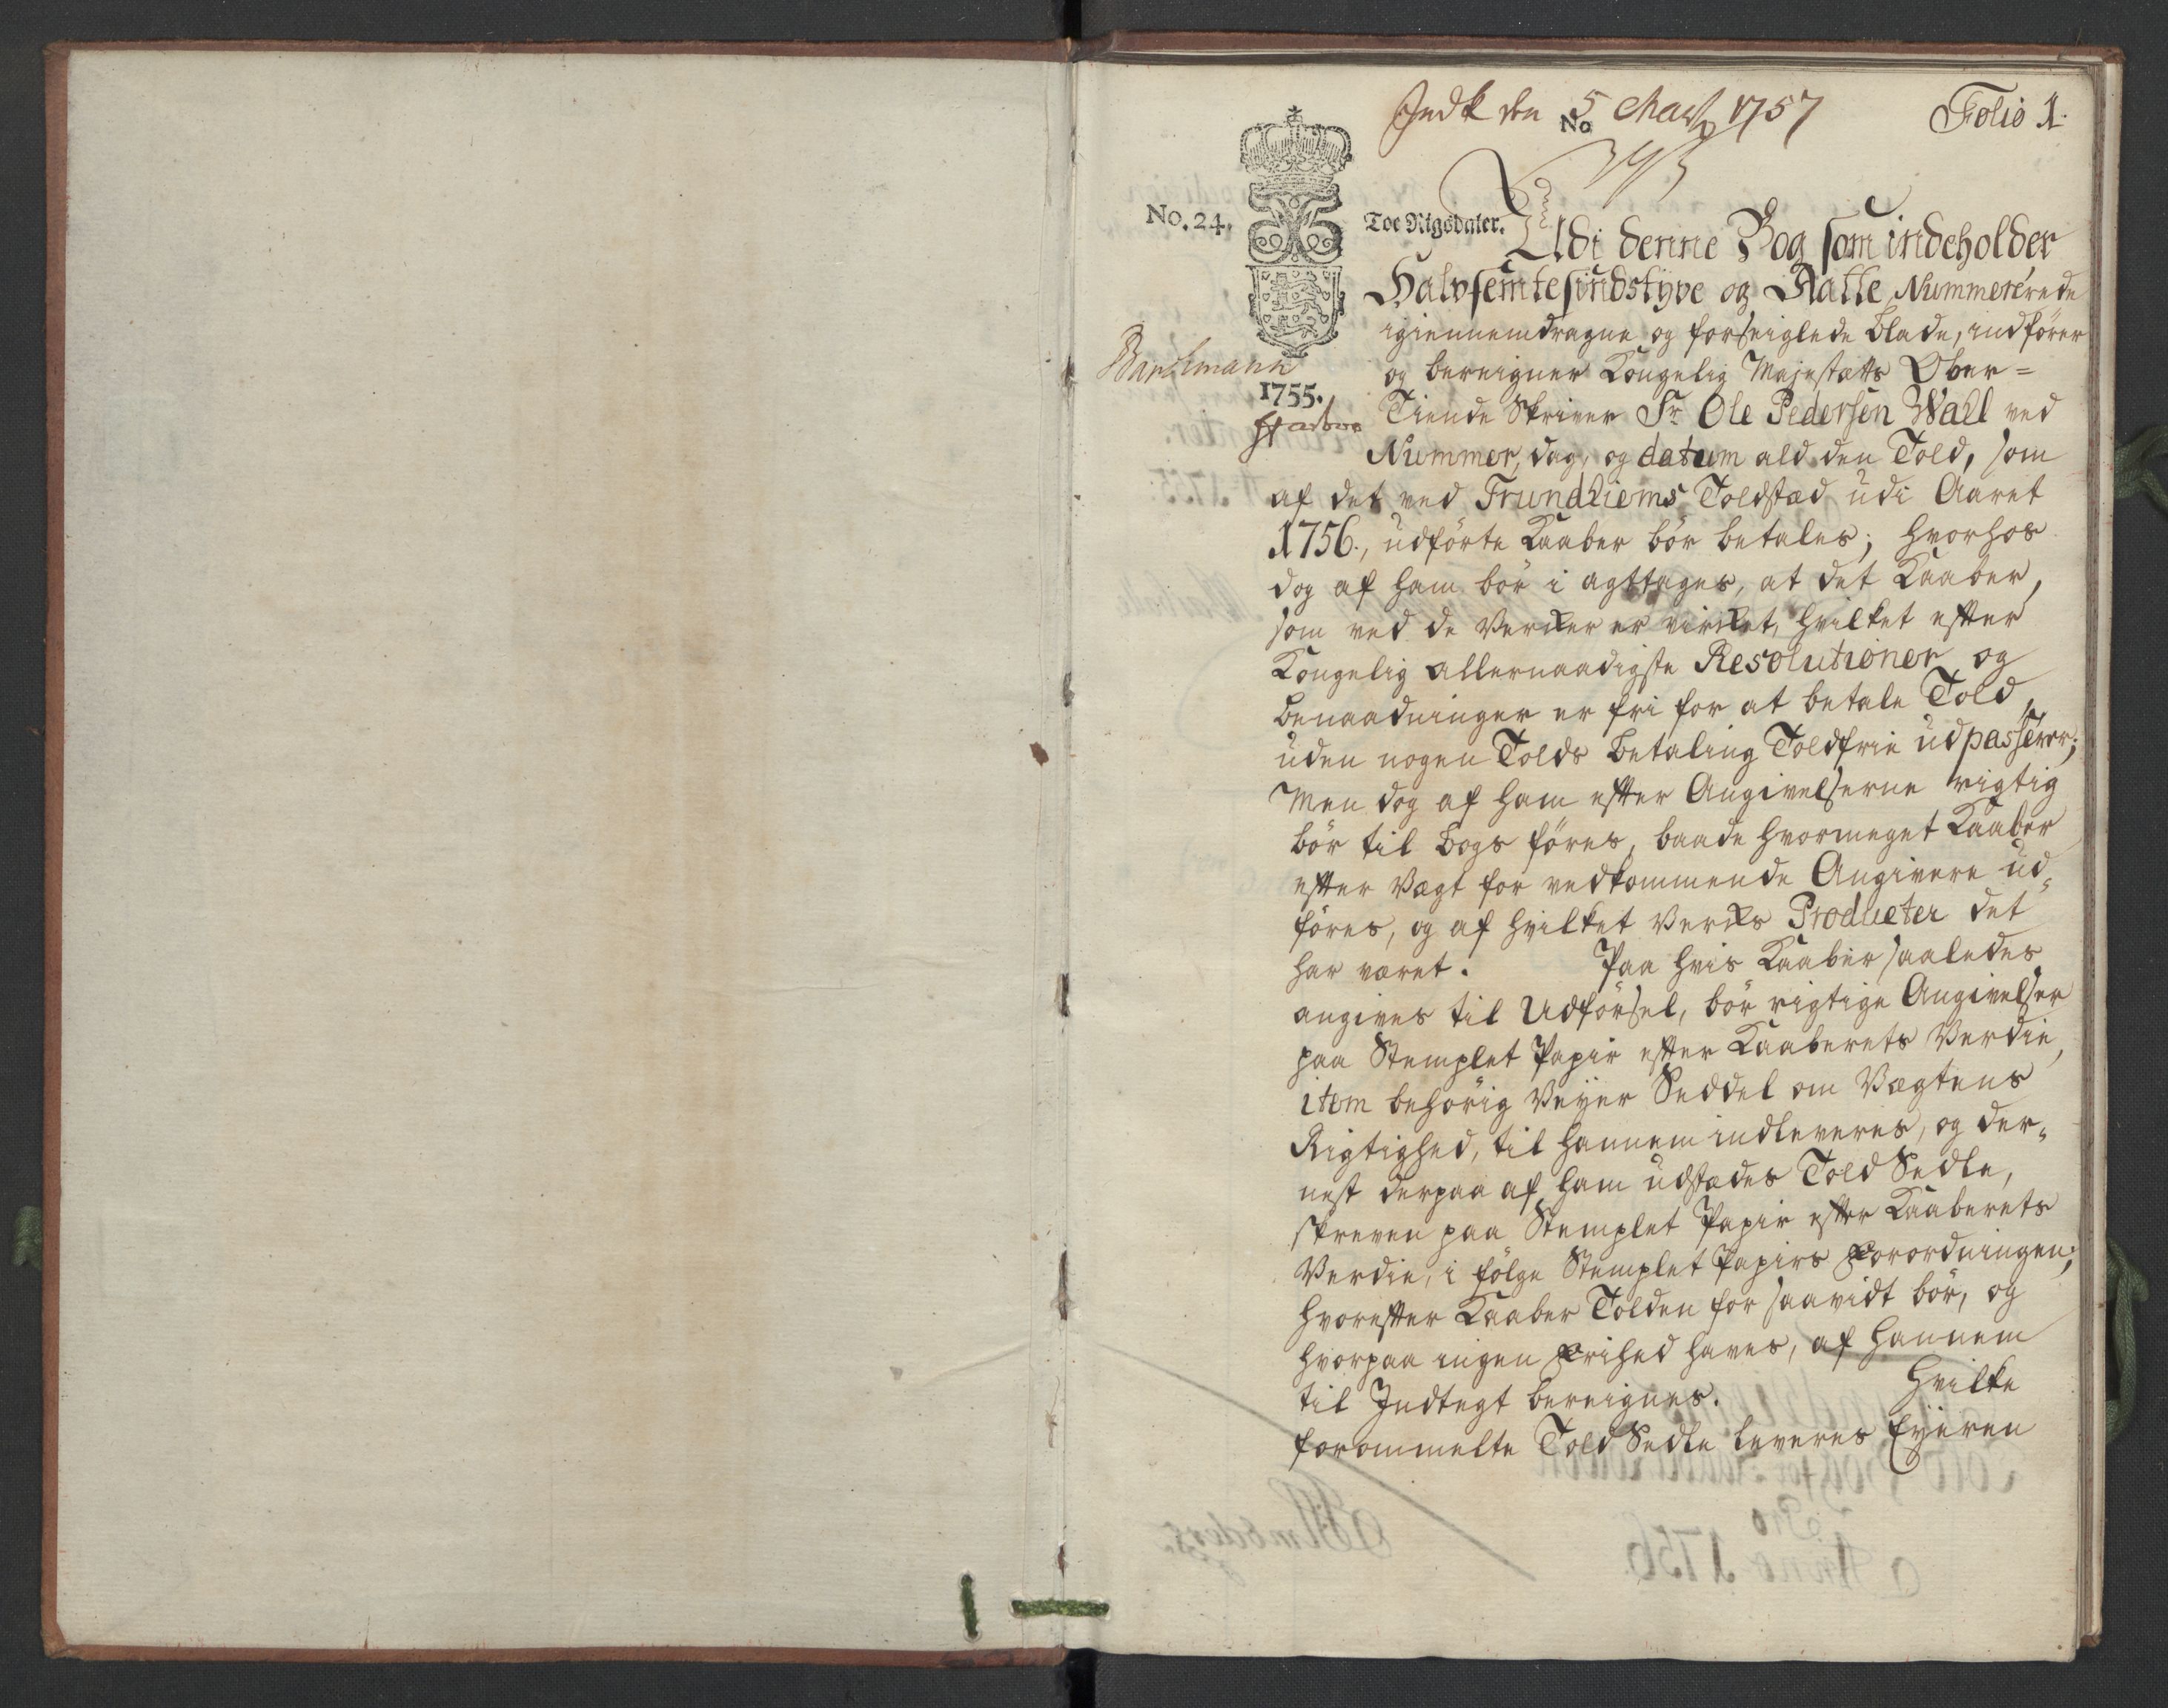 Indk den 5 Marty 1757
No
Folio 1.
No. 24.
Toe Rigsdaler.
Udi denne Bog som indeholder
Halvfemtesindstyve og Aatte Nummererede
igiennemdragne og forseiglede blade, indfører
Barchmann
og bereigner Kongelig Mayestætts Ober=
1755.
Tiende Skriver Sr. Ole Pedersen Wall ved
Nummer, dag, og datum ald den Told, som
af det ved Trundhiems Toldstæd udi Aaret
1756., udførte Kaaber bør betales; hvorhos
dog af ham bør i agttages, at det Kaaber,
som ved de Verker er virket, hvilket efter
Kongelig allernaadigste Resolutioner og
benaadninger er fri for at betale Told,
uden nogen Tolds betaling Toldfrie udpasserer;
Men dog af ham efter Angivelserne rigtig
bør til bogs føres, baade hvormeget Kaaber
efter Vægt for vedkommende Angivere ud„
føres, og af hvilket Verks Producter det
har været. Paa hvis Kaaber saaledes
angives til Udførsel, bør rigtige Angivelser
paa Stemplet Papir efter Kaaberets Verdie,
item behørig Veyer Seddel om Vægtens
Rigtighed, til hannem indleveres, og der„
nest derpaa af ham udstædes Told Sedle,
skreven paa Stemplet Papir efter Kaaberets
Verdie, i følge Stemplet Papirs Forordningen;
hvorefter Kaaber Tolden for saavidt bør, og
hvorpaa ingen Frihed haves, af hannem
til Indtegt bereignes. Hvilke
forommelte Told Sedle leveres Eyeren